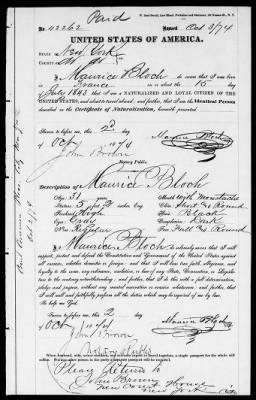 Paid
No 42262
Issued Oct 3/74
UNITED STATES OF AMERICA.
STATE OF New York
COUNTY OF
I, Maurice Bloch do swear that I was born
in France on or about the 15 day
of July 1843 that I am a NATURALIZED AND LOYAL CITIZEN OF THE
UNITED STATES, and about to travel abroad; and further, that I am the Identical Person
described in the Certificate of Naturalization, presented
Sworn to before me, this 2d
day of Oct 1874
Maurice Bloch
John Brown
Notary Public.
Description of Maurice Bloch
Age:
Mouth: with Mustache
Stature: 5
Chin: Short & Round
Forehead: High
Hair: Black
Eyes: Gray
Complexion: Dark
Nose: Regular
Face: Full & Round
I, Maurice Bloch do solemnly swear that I will
support, protect and defend the Constitution and Government of the United States against
all enemies, whether domestic or foreign; and that I will bear true faith, allegiance, and
loyalty to the same, any ordinance, resolution, or law of any State, Convention, or Legisla-
ture to the contrary notwithstanding; and further, that I do this with a full determination,
pledge and purpose, without any mental reservation or evasion whatsoever; and further,
that I will well and faithfully perform all the duties which may be required of me by law.
So help me God.
Sworn to before me, this 2
day of Oct 1874
Maurice Bloch
John Brown
Notary Public
Please return to
John Brown
New Court House
New York City